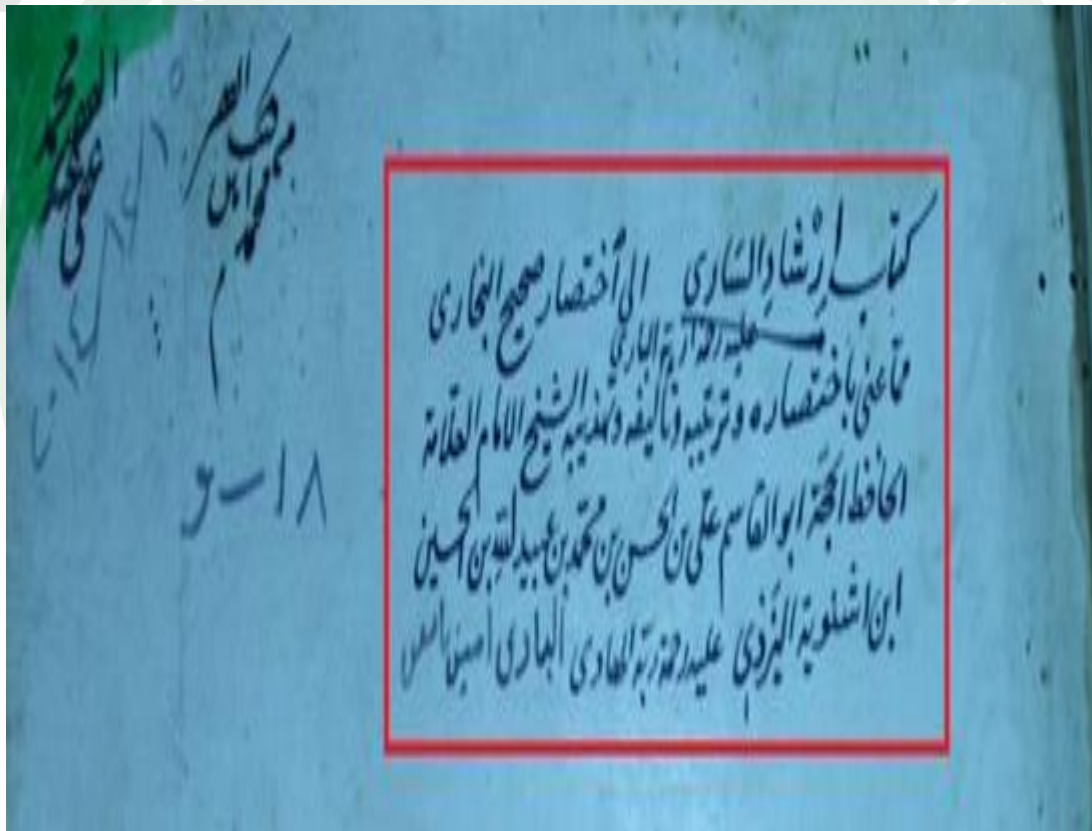 كتاب إرشاد الساري الى أختصار صحيح البخاري
عليه رحمة ربه الباري
مما عني باختصاره وترتيبه وتأليفه وتهذيبه الشيخ الامام العلّامة
الحافظ الحجّة ابو القاسم علي بن الحسن بن محمّد بن عبيد الله بن الحسين
ابن اشنويه اليَزْدي عليه رحمة ربّه الهادي البادى امين
محمد
١٨-و